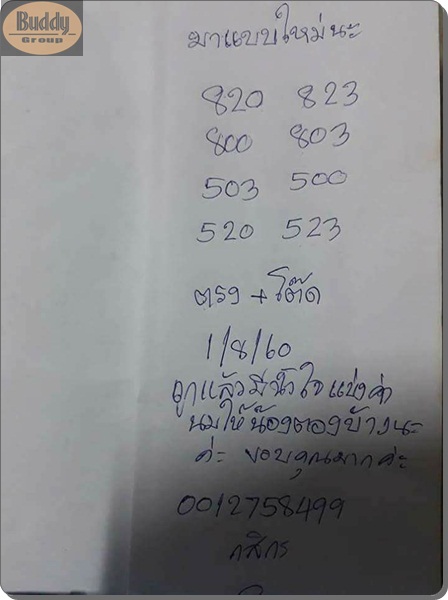 Buddy
Group
มาแบบใหม่นะ
820 823
800 803
503 500
520 523
ตรง + โต๊ด
1/8/60
ถูกแล้วมีน้ำใจแบ่งค่า
นมให้น้องตองบ้างนะ
ค่ะ ขอบคุณมากค่ะ
0012758499
กสิกร